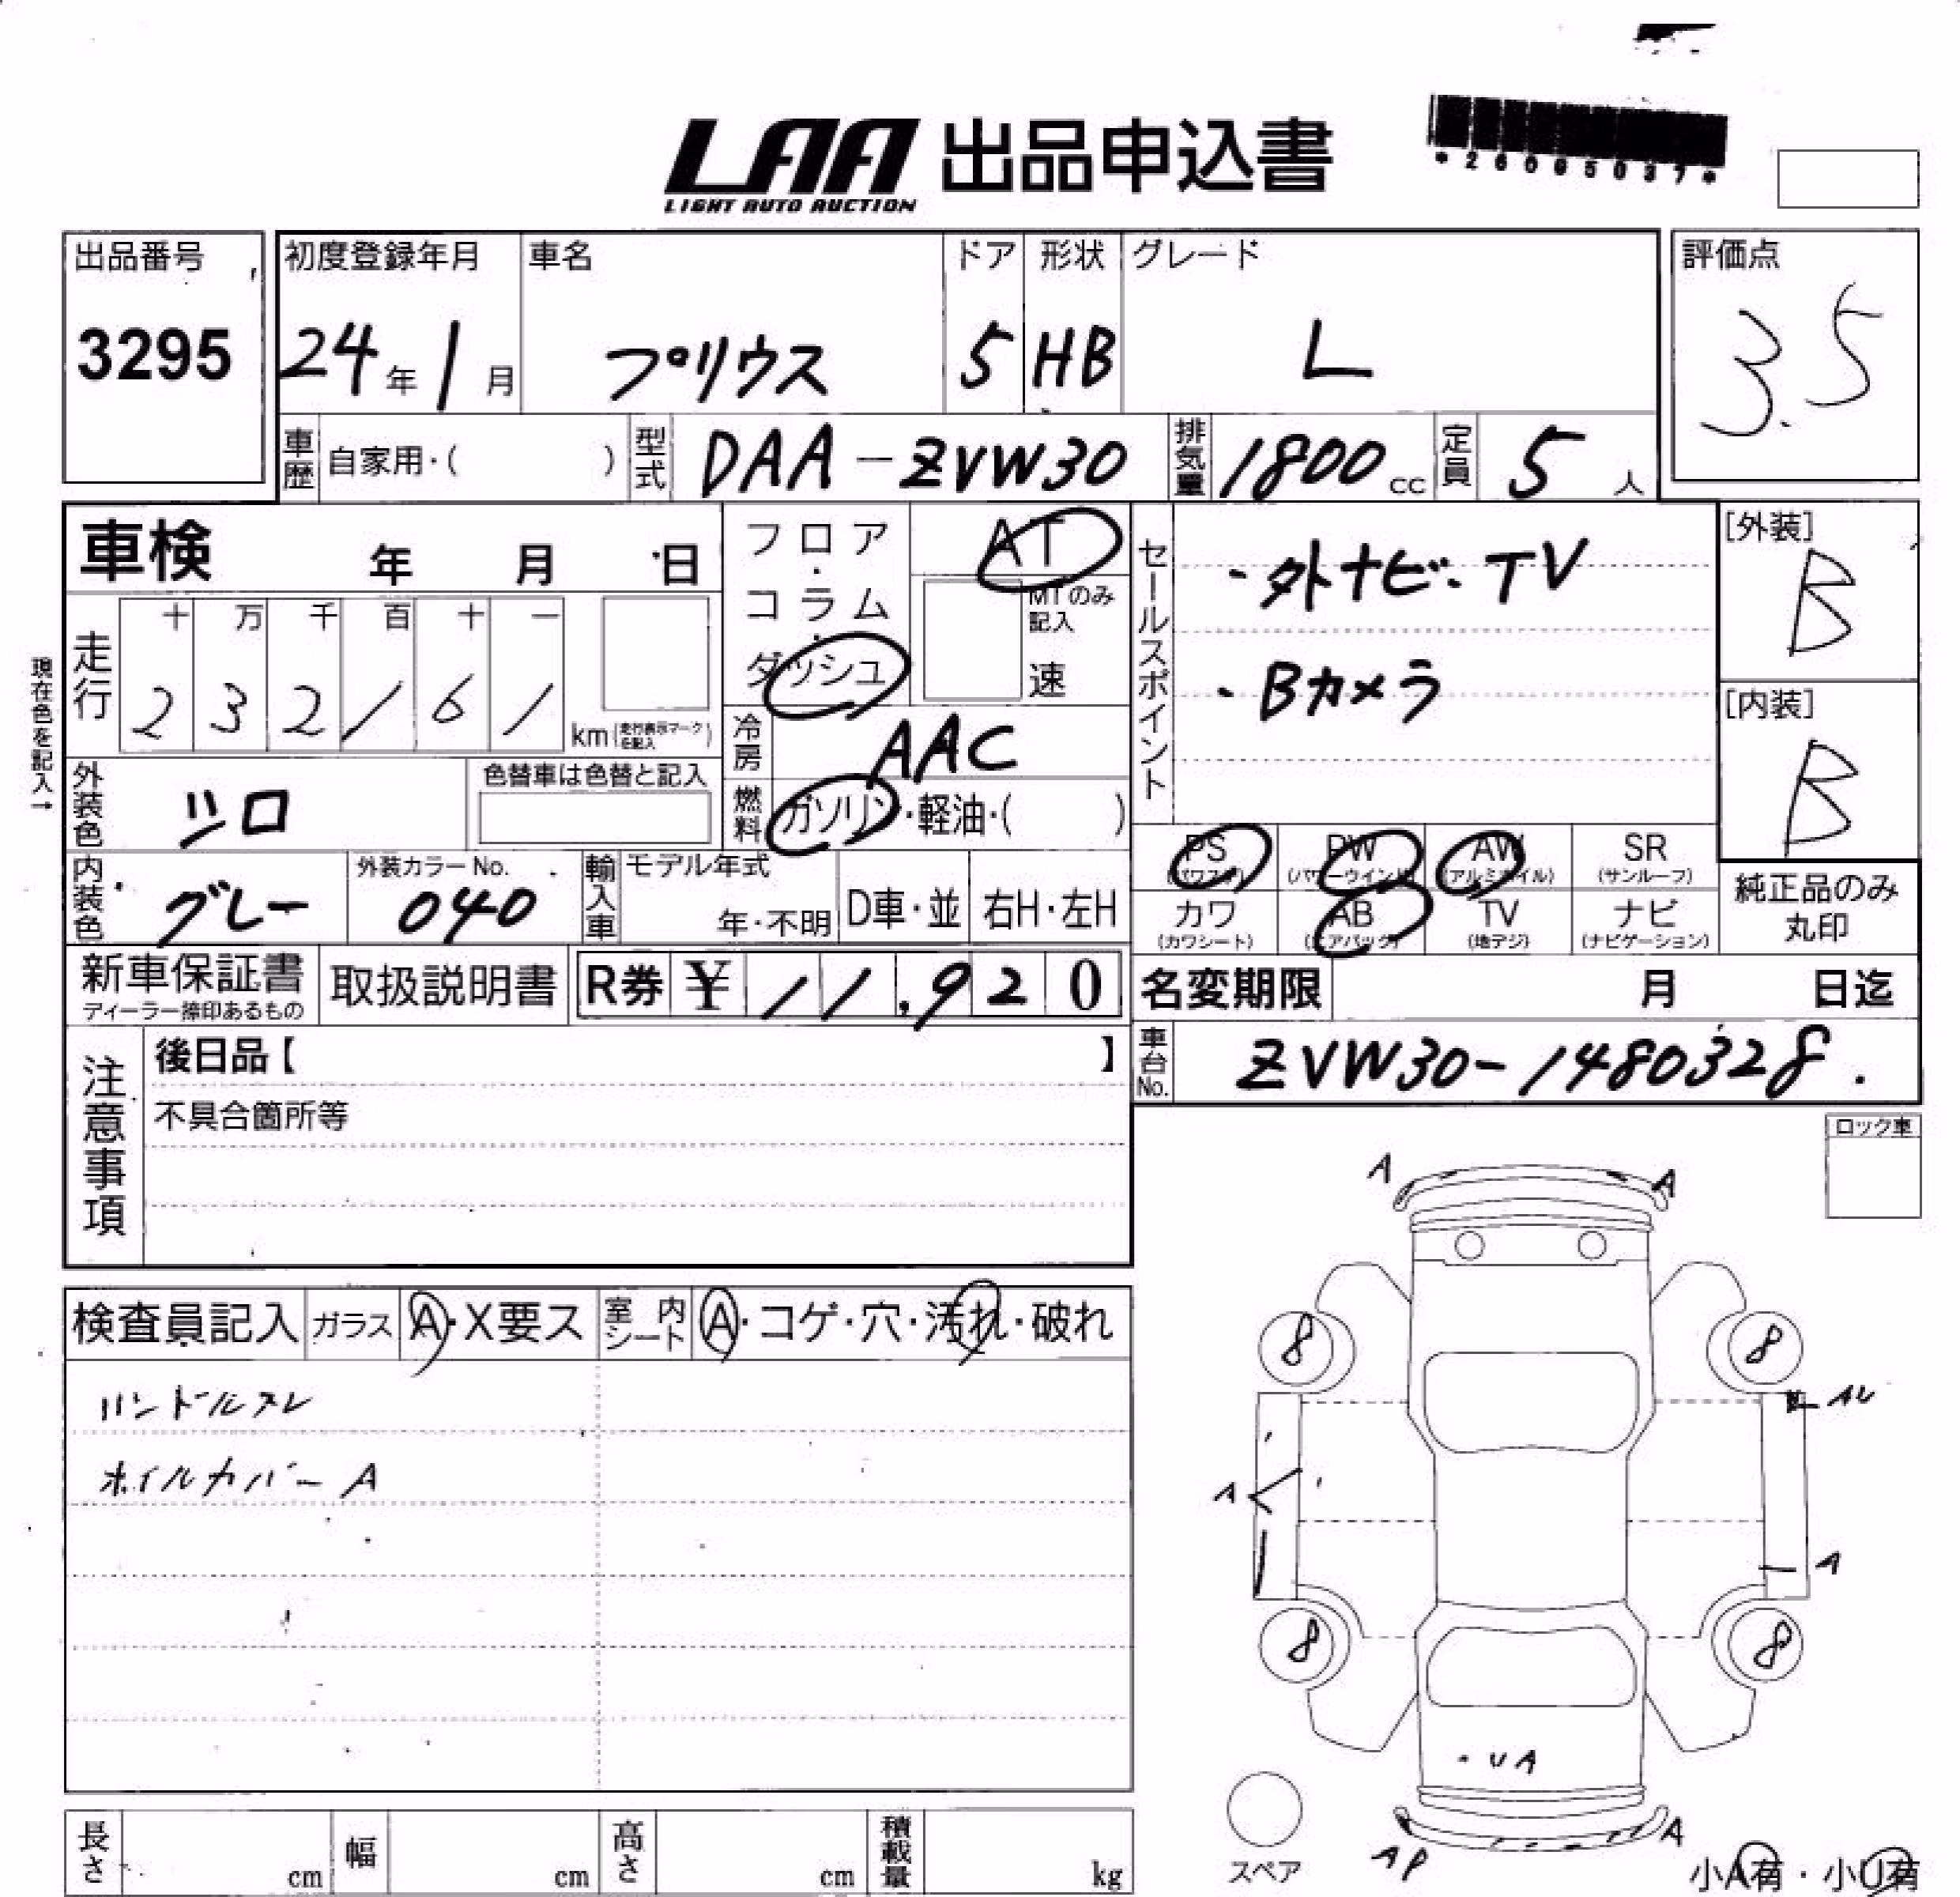 LAA 出品申込書
LIGHT AUTO AUCTION
*26095037*
出品番号
3295
初度登録年月
24年1月
車名
プリウス
ドア
5
形状
HB
グレード
L
評価点
3.5
車歴 自家用・( )
型式 DAA-ZVW30
排気量 1800cc
定員 5人
車検 年 月 日
フロア・コラム・ダッシュ
AT
MTのみ記入
速
セールスポイント
・外ナビ・TV
・Bカメラ
[外装]
B
[内装]
B
現在色を記入→
走行
十 万 千 百 十 一
2 3 2 1 6 1
km(走行表示マークを記入)
冷房 AAC
外装色 シロ
色替車は色替と記入
燃料 ガソリン・軽油・( )
PS (パワステ)
PW (パワーウインド)
AW (アルミホイル)
SR (サンルーフ)
カワ (カワシート)
AB (エアバック)
TV (地デジ)
ナビ (ナビゲーション)
純正品のみ丸印
内装色 グレー
外装カラーNo. 040
輸入車
モデル年式
年・不明
D車・並
右H・左H
新車保証書
ディーラー捺印あるもの
取扱説明書
R券 ¥ 11,920
名変期限 月 日迄
車台No. ZVW30-1480328
注意事項
後日品【 】
不具合箇所等
ロック車
A A
検査員記入
ガラス A・X要ス
室内シート A・コゲ・穴・汚れ・破れ
ハンドルスレ
ホイルカバーA
8 8
AU
A
A
8 8
UA
AP A
スペア
小A有・小U有
長さ cm
幅 cm
高さ cm
積載量 kg